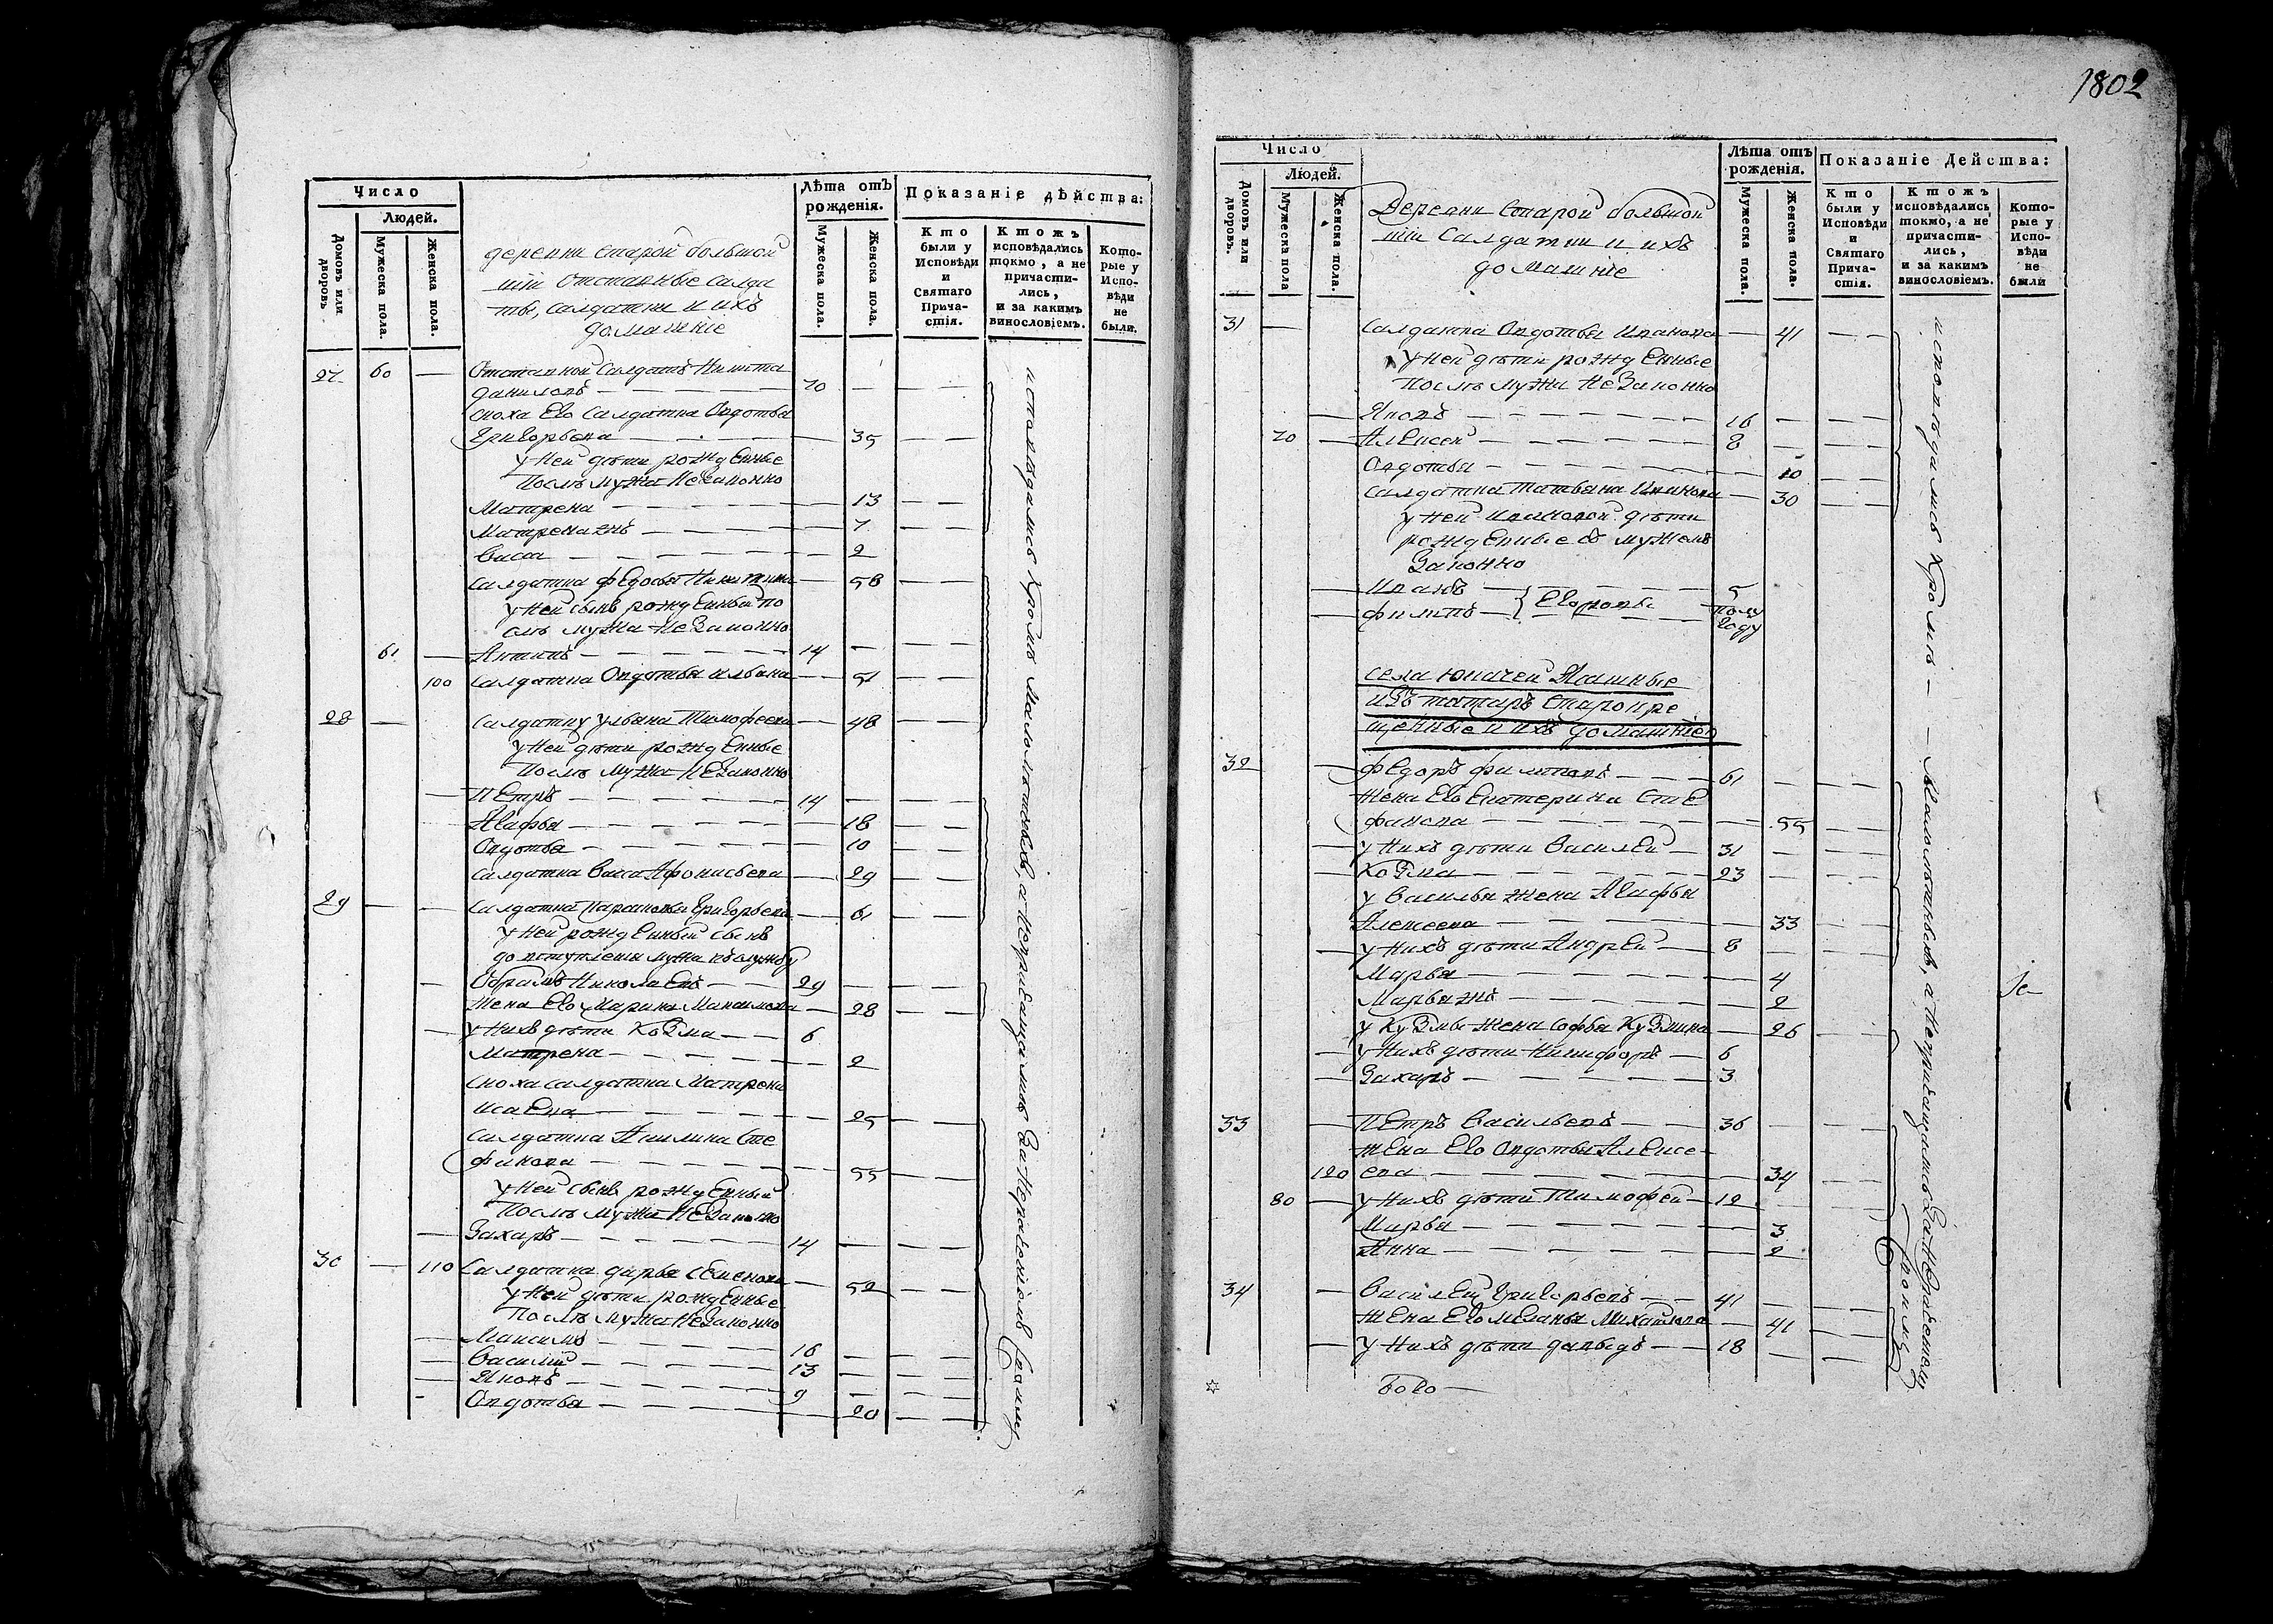 Число
Людей.
Домовъ или дворовъ.
Мужеска пола.
Женска пола.
деревни старой большой
ши отставные салда
ты, салдатки и ихъ
домашние
Лѣта отъ рожденія.
Мужеска пола.
Женска пола.
Показаніе дѣйства:
Кто были у Исповѣди и Святаго Прича-стія.
Ктожъ исповѣдались токмо, а не причасти-лись, и за какимъ винословіемъ.
Кото-рые у Испо-вѣди не были.
27 60 — Отставной салдатъ Никита
даниловъ — 70
сноха Его салдатка Овдотья
Григорьева — 35
у ней дѣти рожденные
послѣ мужа незаконно
Матрена — 13
Матрена жъ — 7
Васса — 2
салдатка федосья Никитина — 58
у ней сынъ рожденный по
слѣ мужа незаконно
61 — Антипъ — 14
100 салдатка Овдотья ильина — 51
28 — салдатка ульяна Тимофеева — 48
у ней дѣти рожденные
послѣ мужа незаконно
— Петръ — 14
Агафья — 18
Овдотья — 10
салдатка Васса Афонасьева — 29
29 — — салдатка Парасковья Григорьева — 61
у ней рожденный сынъ
до вступления мужа въ службу
— Обрамъ Николаевъ — 29
жена Его Марина Максимова — 28
— у нихъ дѣти Козма — 6
Матрена — 2
сноха салдатка Матрена
исаева — 25
салдатка Акилина Сте
фанова — 55
у ней сынъ рожденный
послѣ мужа незаконно
— Захаръ — 14
30 — 110 салдатка дарья семенова — 52
у ней дѣти рожденные
послѣ мужа незаконно
— Максимъ — 16
— Василий — 13
— Яковъ — 9
- Овдотья — 20
исповѣдались кромѣ малолѣтныхъ, а непричащались за нерачениемъ своимъ
1802
Число
Людей.
Домовъ или дворовъ.
Мужеска пола
Женска пола.
Деревни Старой большой
ши Салдатки и ихъ
домашние
Лѣта отъ рожденія.
Мужеска пола.
Женска пола.
Показаніе Действа:
Кто были у Исповѣди и Святаго Прича-стія.
Ктожъ исповѣдались токмо, а не причасти-лись, и за какимъ винословіемъ.
Кото-рые у Испо-вѣди не были
31 — салдатка Овдотья Иванова — 41
у ней дѣти рожденные
послѣ мужа незаконно
— Яковъ — 16
70 — Алексей — 8
Овдотья — 10
салдатка Татьяна Иванова — 30
у ней Ивановой дѣти
рожденные съ мужемъ
законно
— Иванъ — 5
— филипъ — Егоровы — полу
году
села Юкачей Яшные
изъ татаръ старокре
щенные и ихъ домашние
32 — федоръ филиповъ — 61
жена Его Екатерина Сте
фанова — 55
— у нихъ дѣти Василей — 31
— Козма — 23
у Василья жена Агафья
Алексеева — 33
— у нихъ дѣти Андрей — 8
Марья — 4
Марья жъ — 2
у Кузмы жена Софья Кузмина — 26
— у нихъ дѣти Никифоръ — 6
— Захаръ — 3
33 — Петръ Васильевъ — 36
жена Его Овдотья Алексе
120 ева — 34
80 — у нихъ дѣти Тимофей — 12
Марья — 3
Анна — 2
34 — Василей Григорьевъ — 41
жена Его меланья Михайлова — 41
— у нихъ дѣти давыдъ — 18
исповѣдались кромѣ — малолѣтныхъ, а непричащались за нерачениемъ своимъ